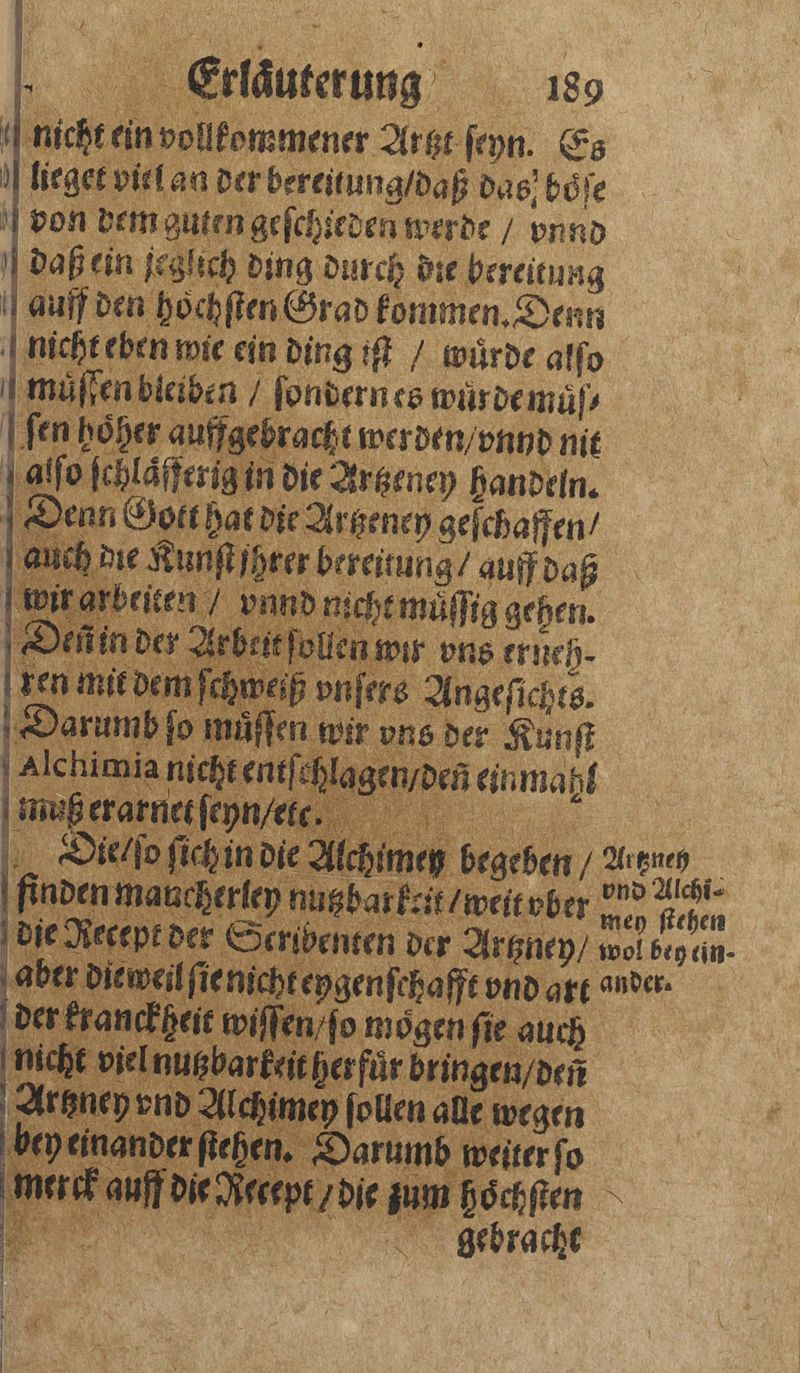 Erlåuterung 189
nicht ein vollkommener Artzt ſeyn. Es
lieget viel an der bereitung/daß das böſe
von dem guten geſchieden werde / vnnd
daß ein jeglich ding durch die bereitung
auff den höchſten Grad kommen. Denn
nicht eben wie ein ding iſt / wůrde alſo
můſſen bleiben / ſondern es wůrde můſ⸗
ſen höher auffgebracht werden/vnnd nit
alſo ſchlåfferig in die Artzeney handeln.
Denn Gott hat die Artzeney geſchaffen/
auch die Kunſt jhrer bereitung/ auff daß
wir arbeiten / vnnd nicht můſſig gehen.
Deñ in der Arbeit ſollen wir vns erneh-
ren mit dem ſchweiß vnſers Angeſichts.
Darumb ſo můſſen wir vns der Kunſt
Alchimia nicht entſchlagen/deñ einmahl
muß erarnet ſeyn/etc.
Die/ſo ſich in die Alchimey begeben /
finden mancherley nutzbarkeit/weit vber
die Recept der Scribenten der Artzney/
aber dieweil ſie nicht eygenſchafft vnd art
der kranckheit wiſſen/ſo mögen ſie auch
nicht viel nutzbarkeit herfůr bringen/deñ
Artzney vnd Alchimey ſollen alle wegen
bey einander ſtehen. Darumb weiter ſo
merck auff die Recept / die zum höchſten
gebracht
Artzney
vnd Alchi-
mey ſtehen
wol bey ein-
ander.